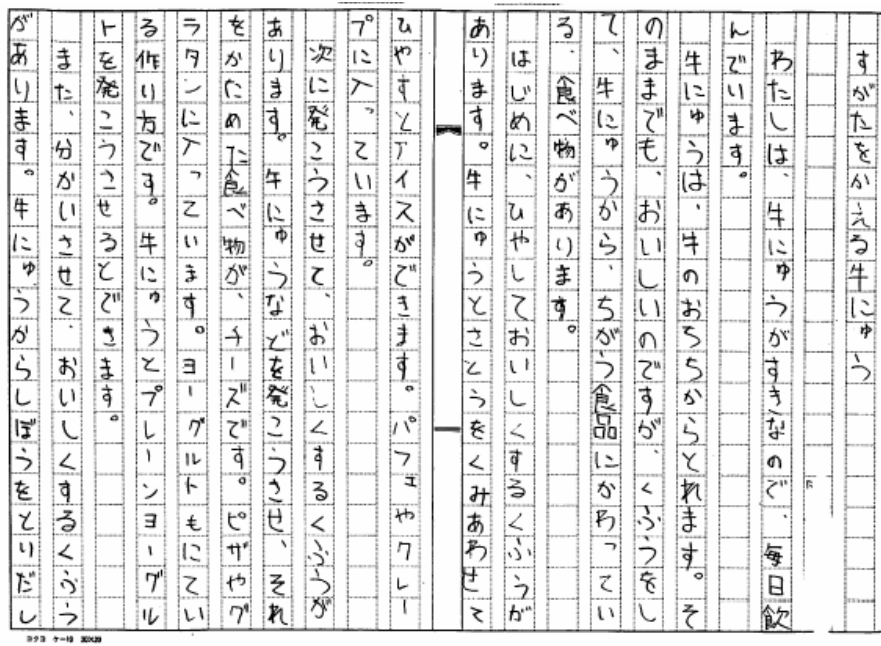 すがたをかえる牛にゅう
わたしは、牛にゅうがすきなので、毎日飲
んでいます。
牛にゅうは、牛のおちちからとれます。そ
のままでも、おいしいのですが、くふうをし
て、牛にゅうから、ちがう食品にかわってい
る、食べ物があります。
はじめに、ひやしておいしくするくふうが
あります。牛にゅうとさとうをくみあわせて
ひやすとアイスができます。パフェやクレー
プに入っています。
次に発こうさせて、おいしくするくふうが
あります。牛にゅうなどを発こうさせ、それ
をかためた食べ物が、チーズです。ピザやグ
ラタンに入っています。ヨーグルトもにてい
る作り方です。牛にゅうとプレーンヨーグル
トを発こうさせるとできます。
また、分かいさせて、おいしくするくふう
があります。牛にゅうからしぼうをとりだし
コクヨ ケー10 20X20